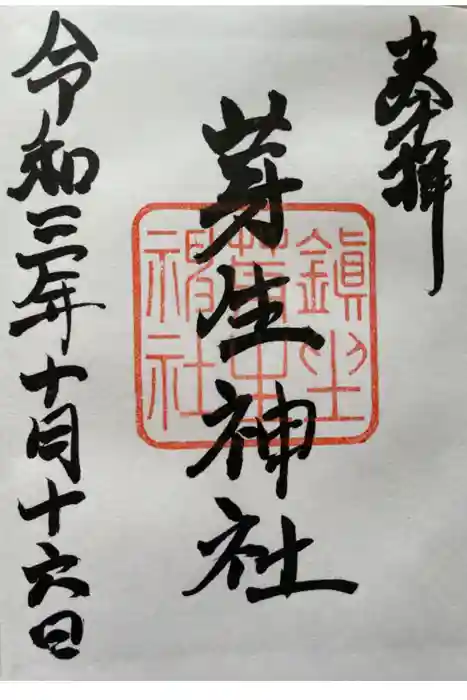 奉拝
芽生神社
鎮坐
神社
令和三年十月十六日